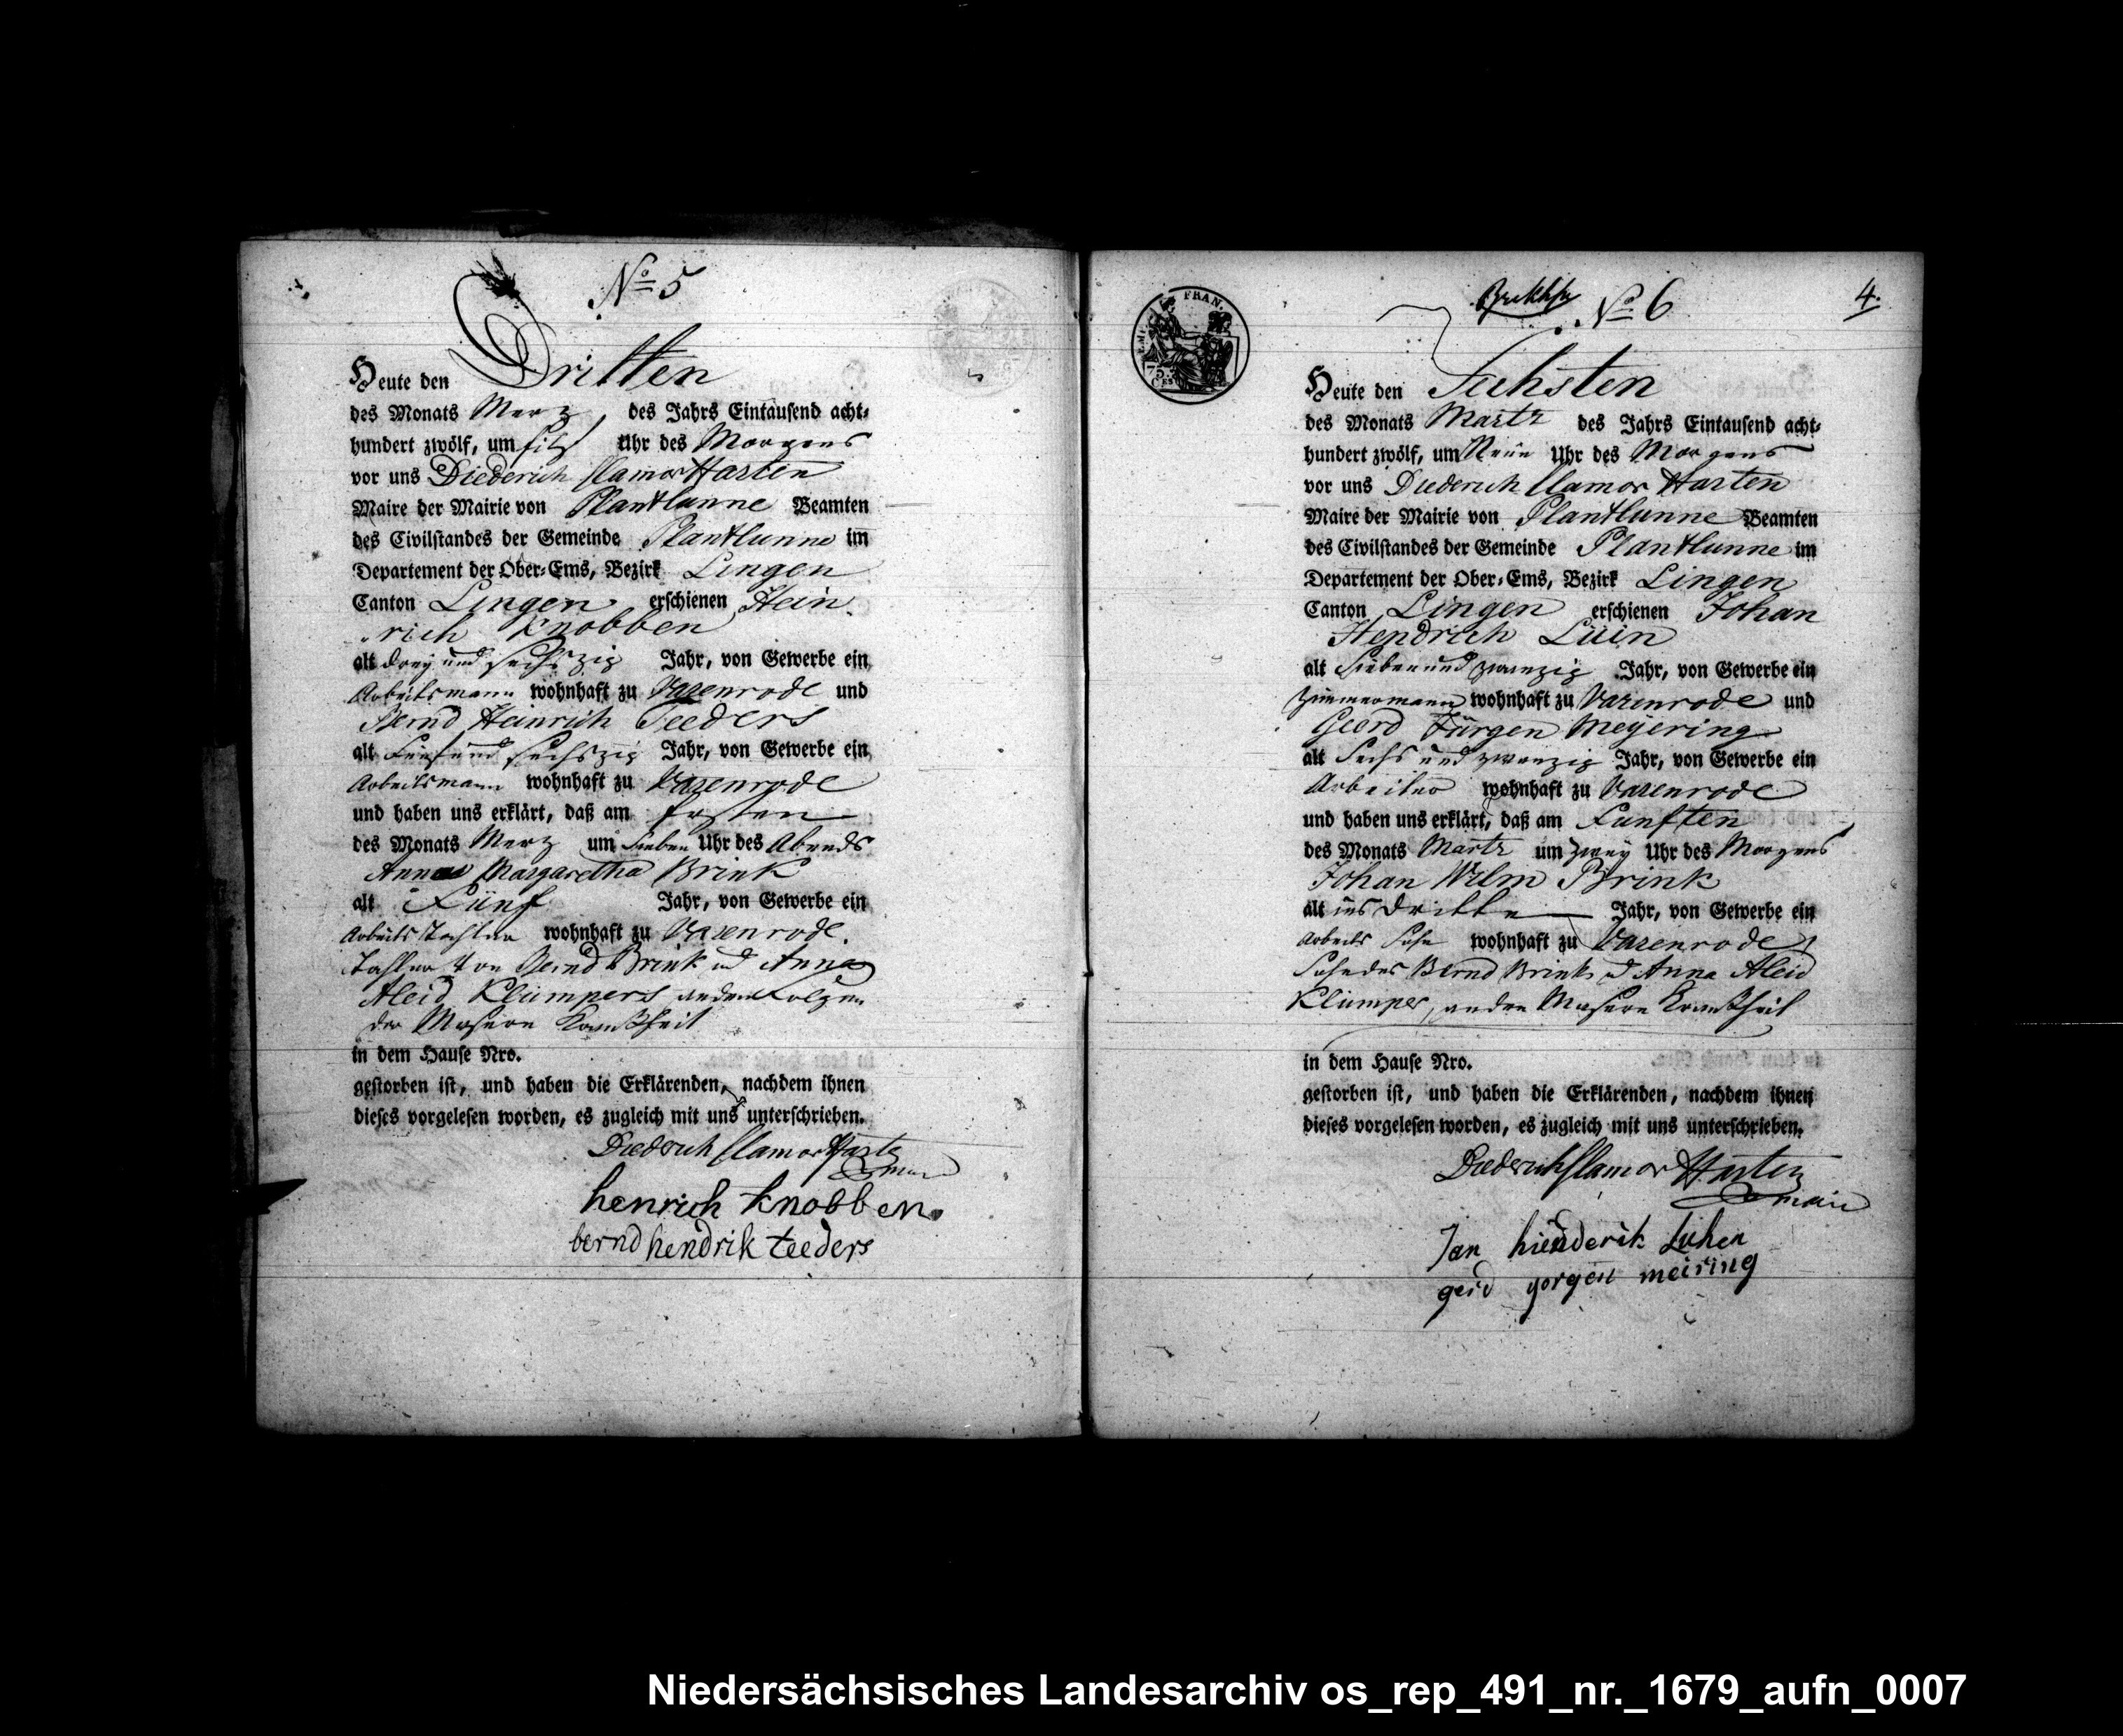 No 5
Heute den Dritten
des Monats Merz des Jahrs Eintausend acht-
hundert zwölf, um Uhr des Morgens
vor uns Diederich Clamor Harten
Maire der Mairie von Plantlunne Beamten
des Civilstandes der Gemeinde Plantlunne im
Departement der Ober-Ems, Bezirk Lingen
Canton Lingen erschienen Hein
rich Knobben
alt drey und sechszig Jahr, von Gewerbe ein
Arbeitsmann wohnhaft zu Varenrode und
Bernd Heinrich Teeders
alt Fünf und sechszig Jahr, von Gewerbe ein
Arbeitsmann wohnhaft zu Varenrode
und haben uns erklärt, daß am Ersten
des Monats Merz um Sieben Uhr des Abends
Anna Margaretha Brink
alt Fünf Jahr, von Gewerbe ein
Arbeits Tochter wohnhaft zu Varenrode.
Tochter von Bernd Brink und Anna
Aleid Klümpers an den Folgen
der Masern Krankheit
in dem Hause Nro.
gestorben ist, und haben die Erklärenden, nachdem ihnen
dieses vorgelesen worden, es zugleich mit uns unterschrieben.
Diederich Clamor Harten
maire
henrich Knobben
bernd hendrik teeders
No 6
4.
FRAN.
75
CES
Heute den Sechsten
des Monats Martz des Jahrs Eintausend acht-
hundert zwölf, um Neun Uhr des Morgens
vor uns Diederich Clamor Harten
Maire der Mairie von Plantlunne Beamten
des Civilstandes der Gemeinde Plantlunne im
Departement der Ober-Ems, Bezirk Lingen
Canton Lingen erschienen Johan
Hendrich Lüin
alt Sieben und zwanzig Jahr, von Gewerbe ein
Zimmermann wohnhaft zu Varenrode und
Geord Jürgen Meyering
alt Sechs und zwanzig Jahr, von Gewerbe ein
Arbeiter wohnhaft zu Varenrode
und haben uns erklärt, daß am Funften
des Monats Martz um zwey Uhr des Morgens
Johan Wilm Brink
alt ins dritte Jahr, von Gewerbe ein
Arbeits Sohn wohnhaft zu Varenrode
Sohn des Bernd Brink und Anna Aleid
Klümper, an den Masern Krankheit
in dem Hause Nro.
gestorben ist, und haben die Erklärenden, nachdem ihnen
dieses vorgelesen worden, es zugleich mit uns unterschrieben.
Diederich Clamor Harten
maire
Jan hienderik Luhen
gerd yorgen meiring
Niedersächsisches Landesarchiv os_rep_491_nr._1679_aufn_0007